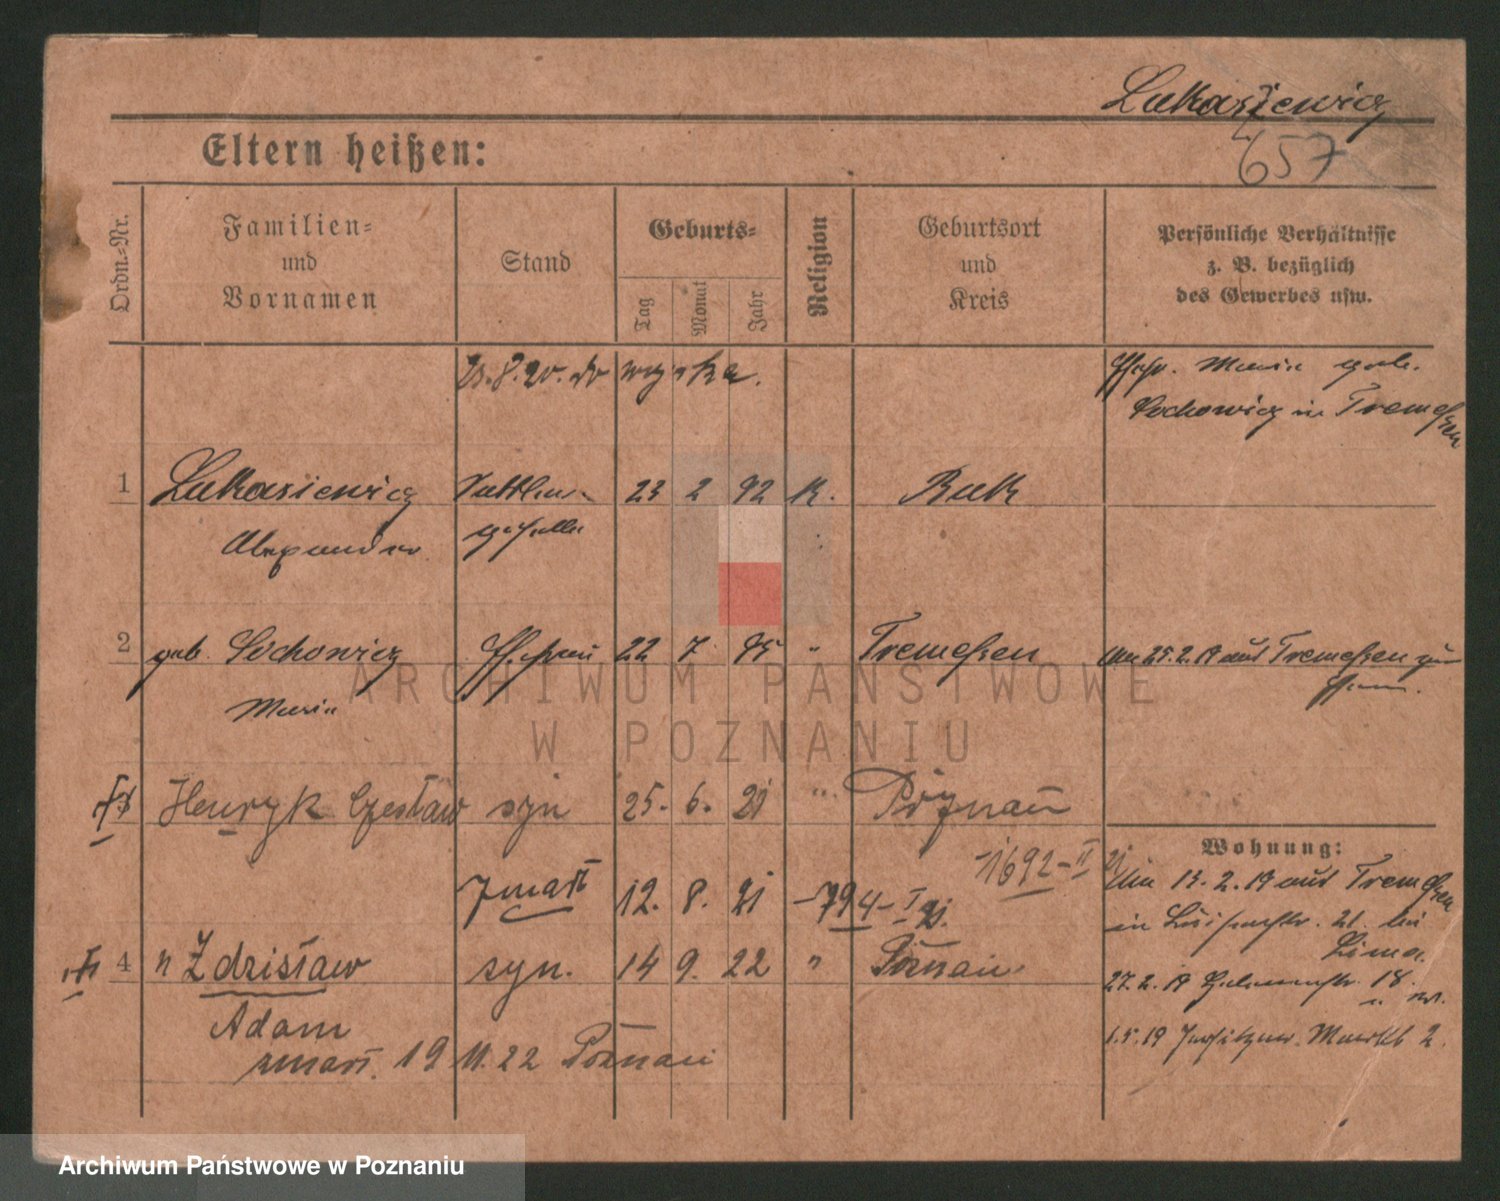 Lukasziewicz
657
Eltern heißen:
Ordn.-Nr.
Familien-
und
Vornamen
Stand
Geburts-
Tag
Monat
Jahr
Religion
Geburtsort
und
Kreis
Persönliche Verhältnisse
z. B. bezüglich
des Gewerbes usw.
23.8.20. do wojska.
Ehefr. Maria geb.
Sochowicz in Tremeßen
1 Lukasiewicz Sattler- 23 2 92 K. Buk
Alexander geselle
2 geb. Sochowicz Ehefrau 22 7 95 " Tremeßen Um 25.2.19 aus Tremeßen zum
Maria
3 Henryk Czesław syn 25. 6. 21 " Poznań
Wohnung:
1692-II
zmarł 12. 8. 21 -794-I 21.
Um 13.2.19 aus Tremeßen
in Luisenstr. 21. bei
4 " Zdzisław syn. 14 9. 22 " Poznań
27.2.19 18
Adam
zmarł. 19 11. 22 Poznań
1.5.19 Markt 2.
ARCHIWUM PAŃSTWOWE
W POZNANIU
Archiwum Państwowe w Poznaniu